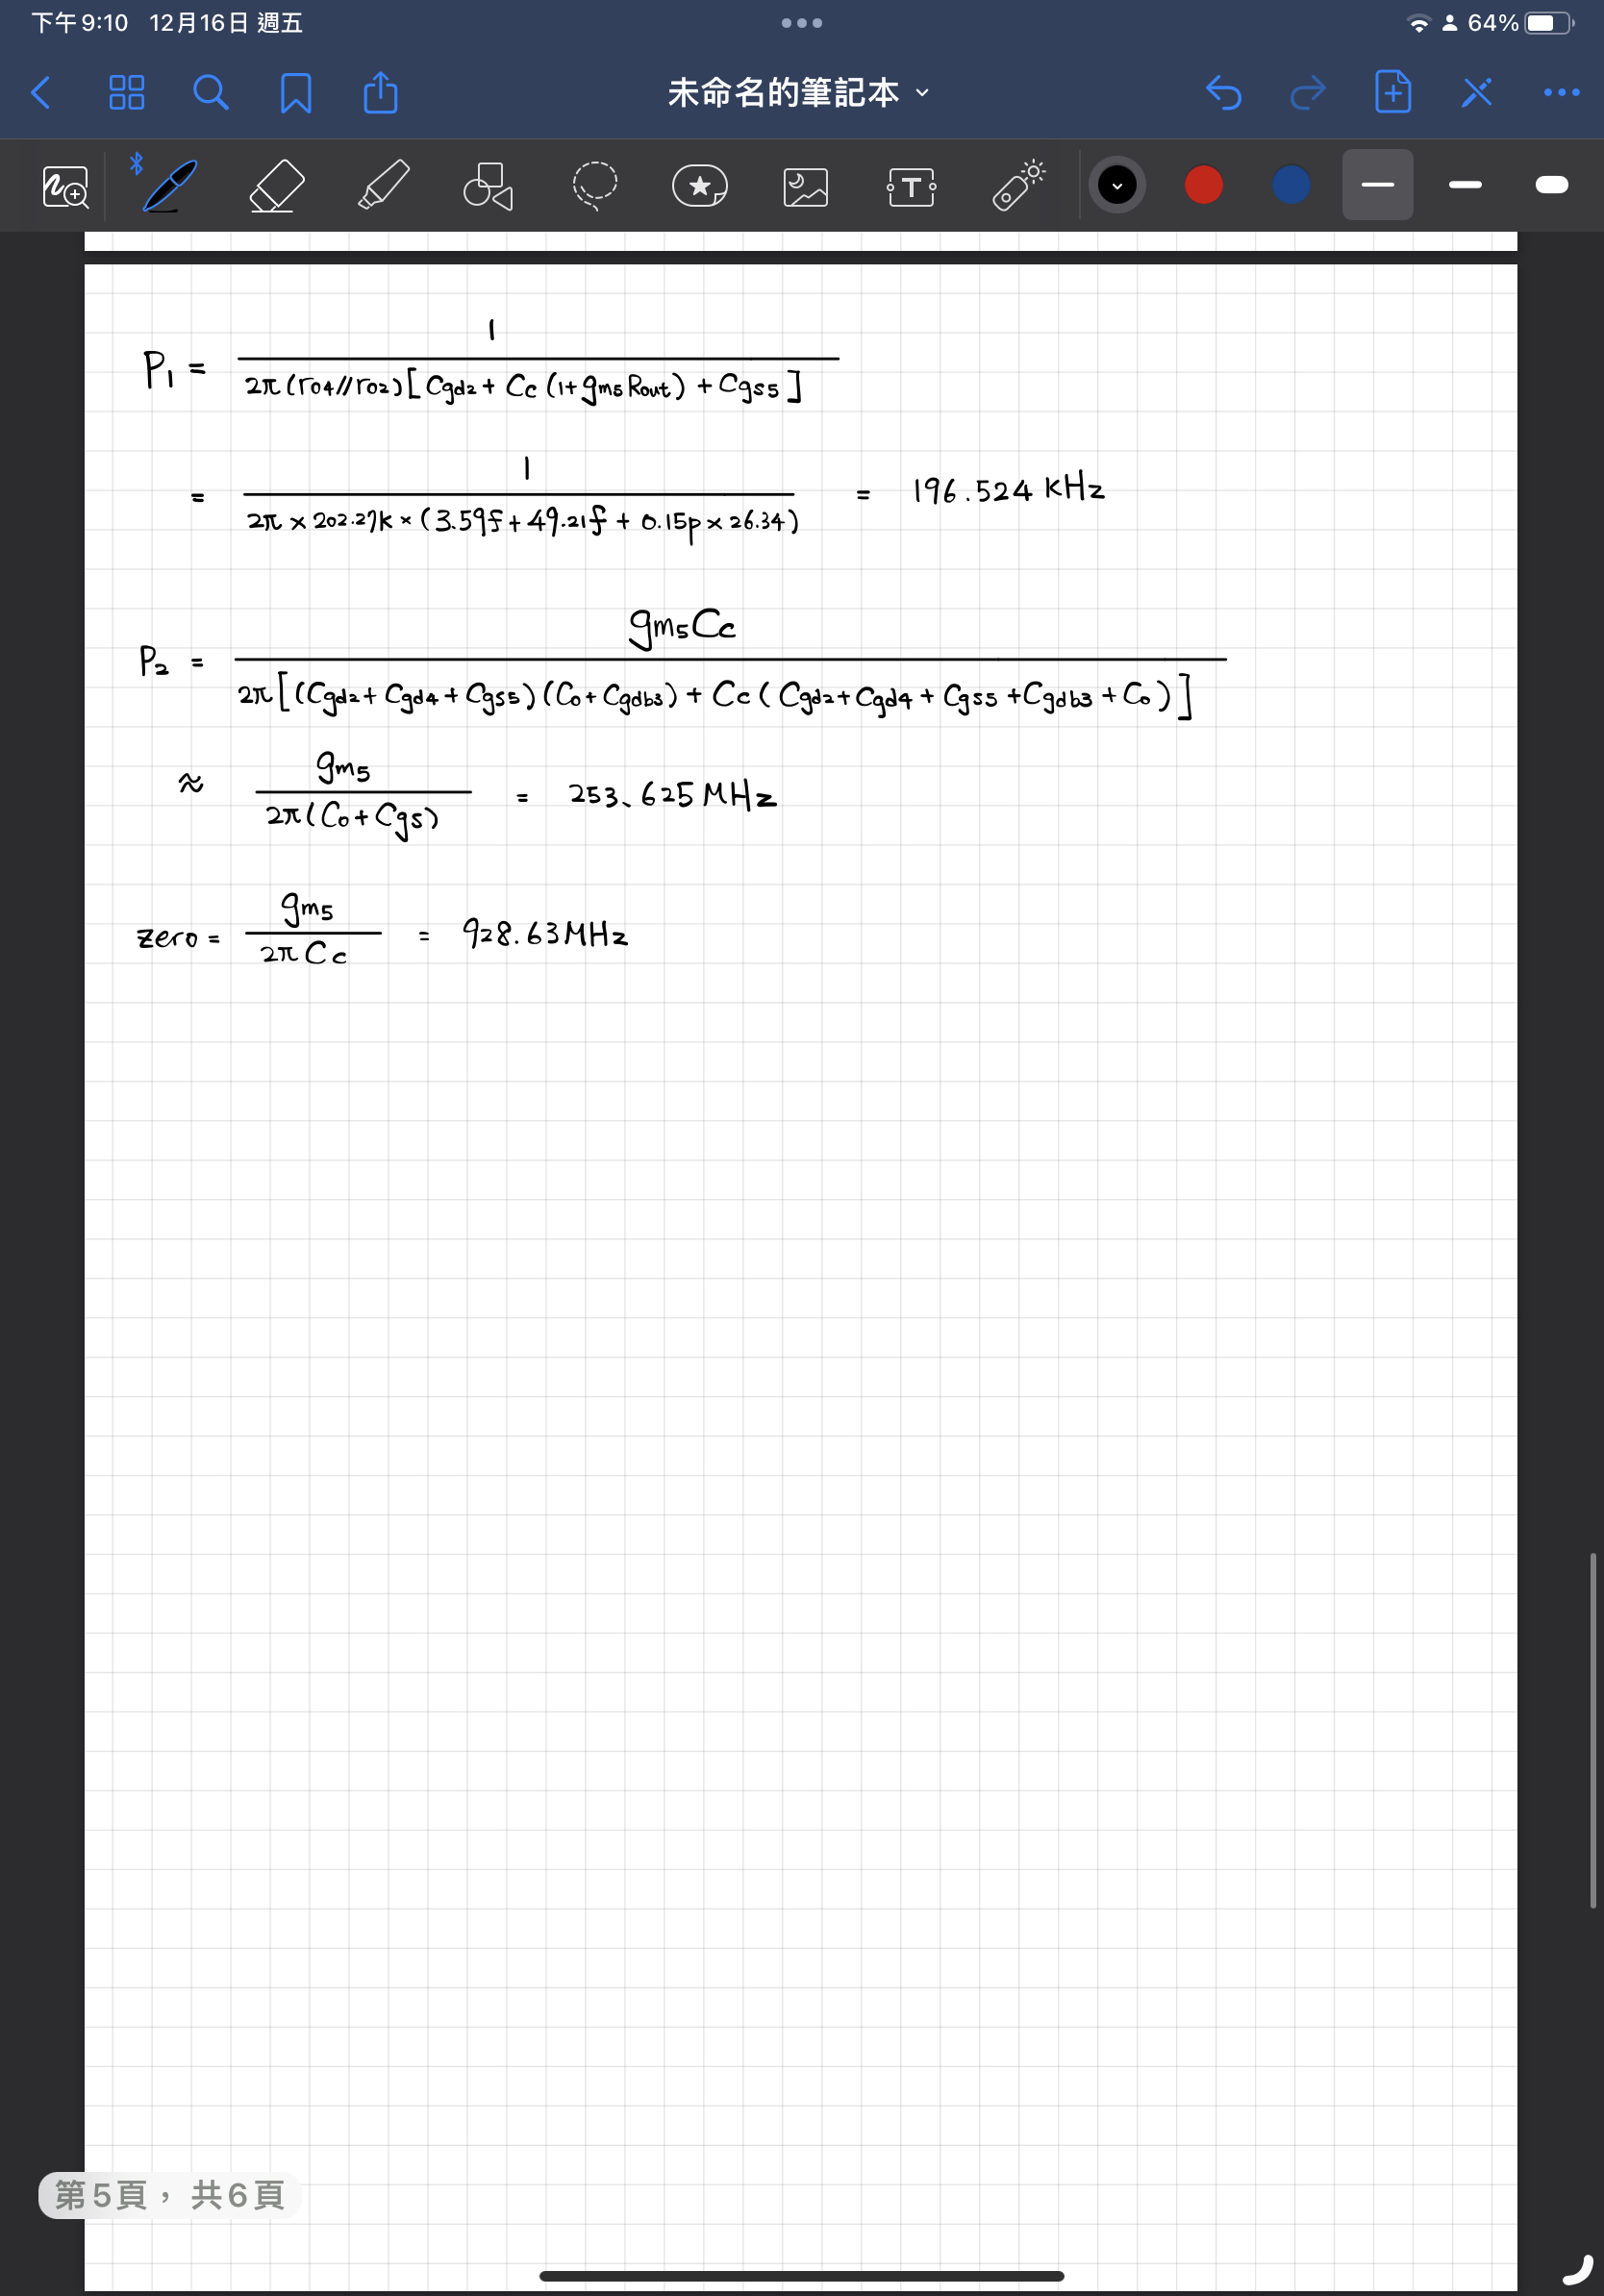 下午9:10 12月16日 週五
64%
未命名的筆記本
T
P₁ = 1 / 2π(ro4//ro2)[Cgd2 + Cc(1+gm5Rout) + Cgs5]
= 1 / 2π × 202.27k × (3.59f + 49.21f + 0.15p × 26.34) = 196.524 kHz
P₂ = gm5Cc / 2π[(Cgd2 + Cgd4 + Cgs5)(Co + Cgdb3) + Cc(Cgd2 + Cgd4 + Cgs5 + Cgdb3 + Co)]
≈ gm5 / 2π(Co + Cgs) = 253.625 MHz
zero = gm5 / 2πCc = 928.63 MHz
第5頁，共6頁